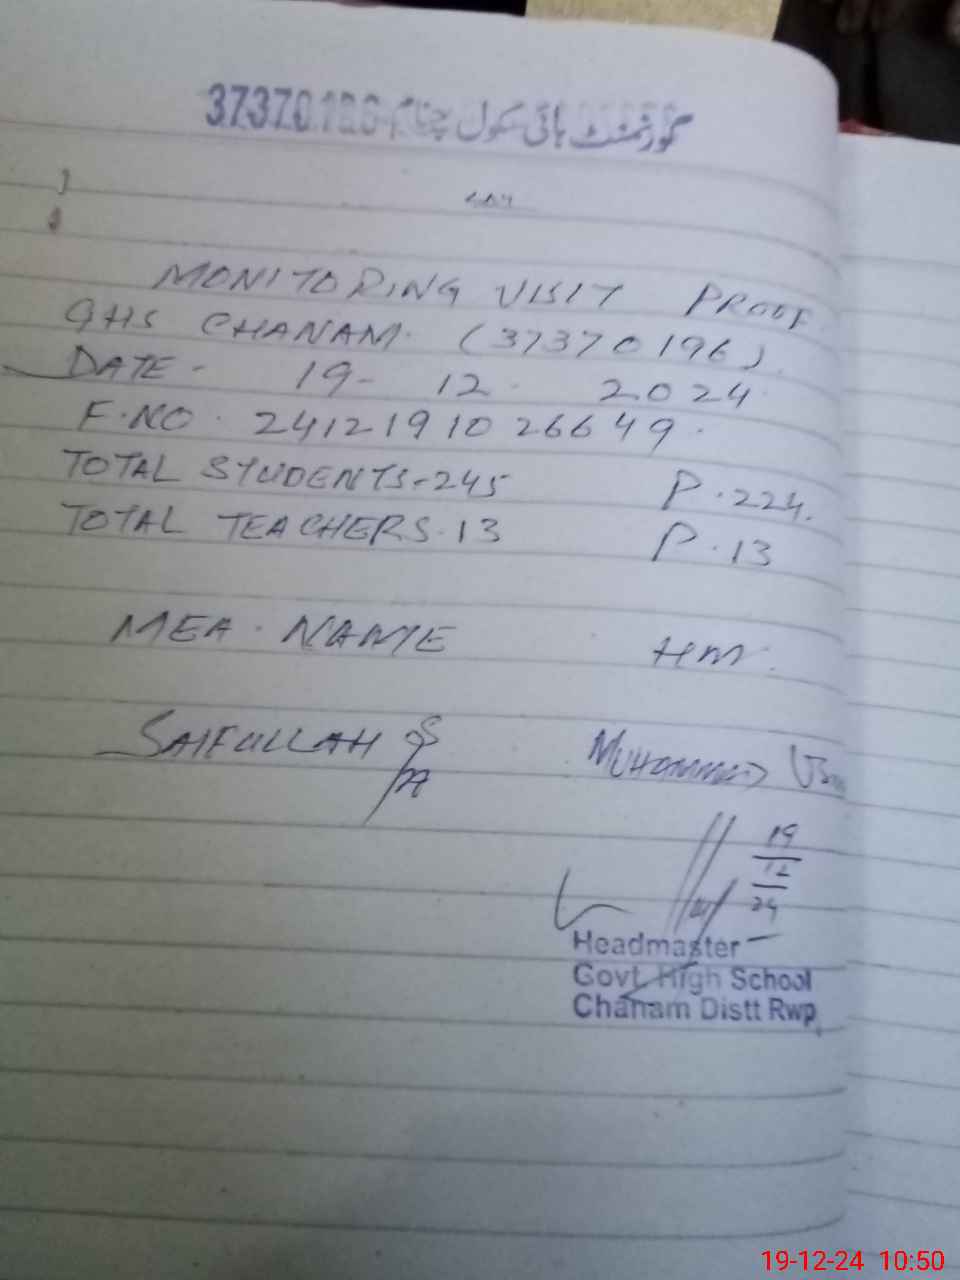 گورنمنٹ ہائی سکول چنام
MONITORING VISIT PROOF
GHS CHANAM. (37370196)
DATE - 19- 12. 2024
F.NO. 24121910 26649.
TOTAL STUDENTS-245 P.224.
TOTAL TEACHERS.13 P.13
MEA. NAME HM.
SAIFULLAH MUHAMMAD
19
12
24
Headmaster
Govt. High School
Chanam Distt Rwp
19-12-24 10:50